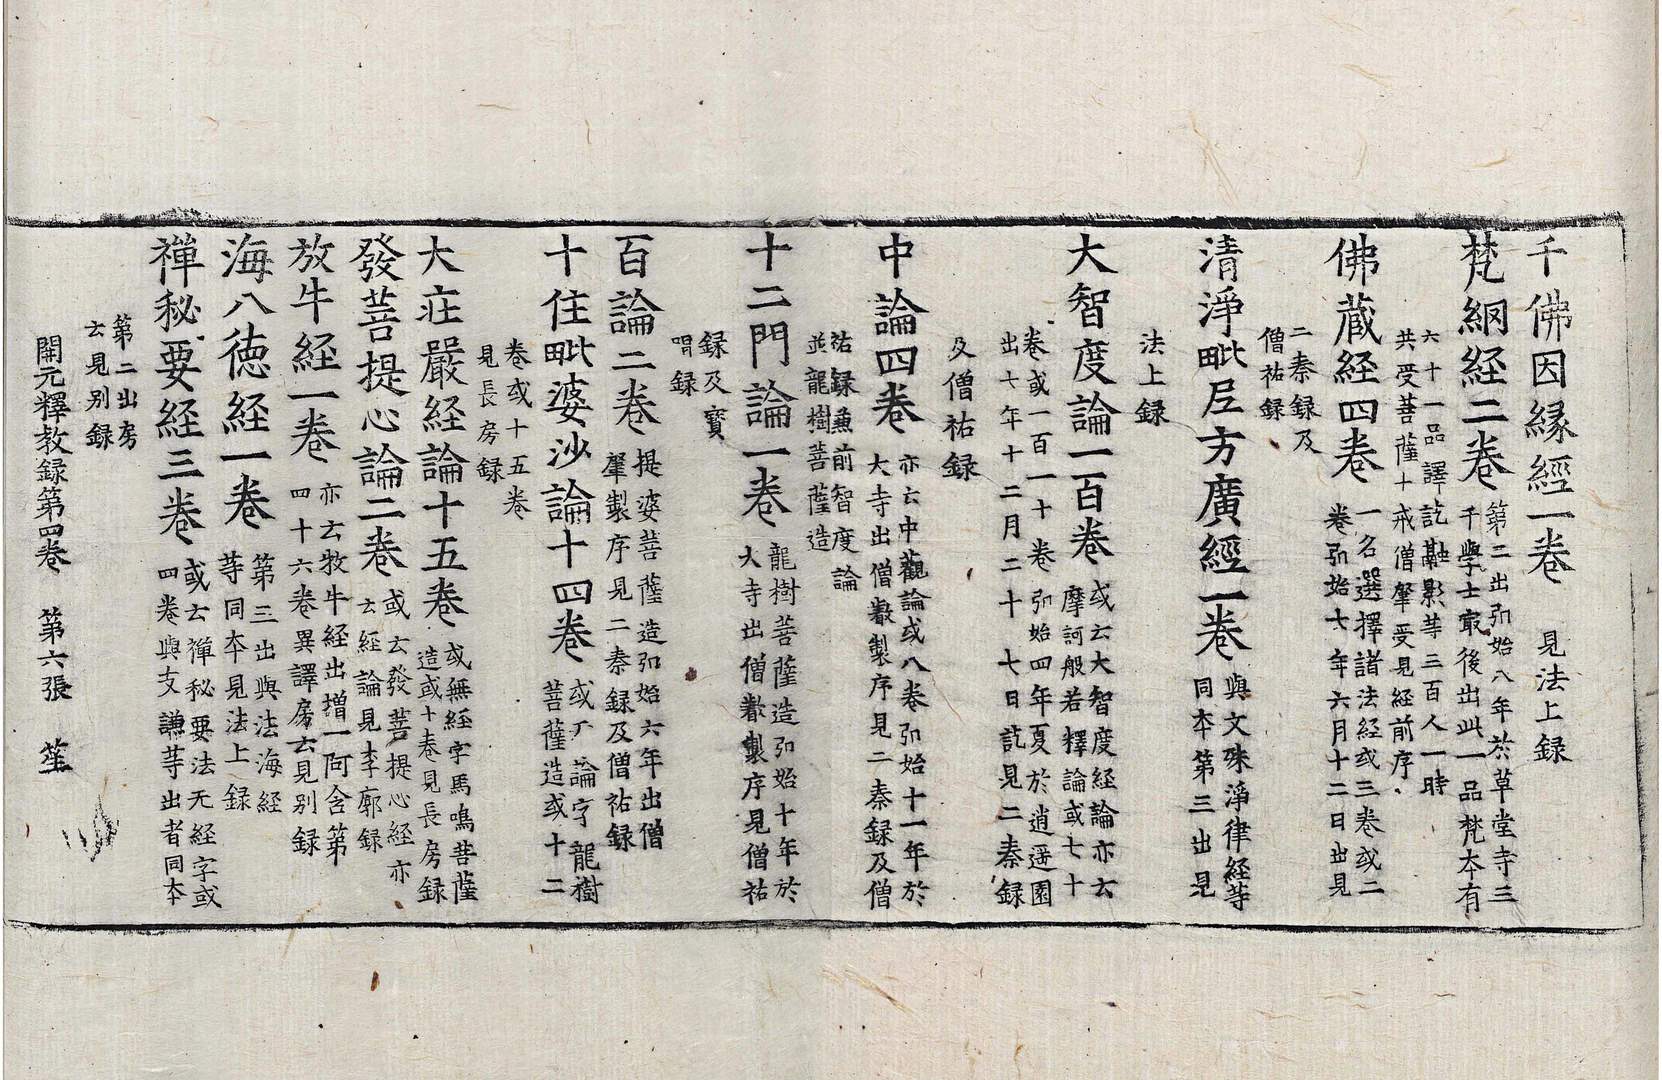 千佛因縁經一卷 見法上録
梵網經二卷 第二出弘始八年於草堂寺三
千學士㝡後出此一品梵本有
六十一品譯訖融影等三百人一時
共受菩薩十戒僧肇受見經前序
佛蔵経四卷 一名選擇諸法経或三卷或二
卷弘始七年六月十二日出見
二秦録及
僧祐録
清淨毗尼方廣經一卷 與文殊淨律経等
同本第三出見
法上録
大智度論一百卷 或云大智度経論亦云
摩訶般若釋論或七十
卷或一百一十卷弘始四年夏於逍遥園
出七年十二月二十七日訖見二秦録
及僧祐録
中論四卷 亦云中觀論或八卷弘始十一年於
大寺出僧叡製序見二秦録及僧
祐録兼前智度論
並龍樹菩薩造
十二門論一卷 龍樹菩薩造弘始十年於
大寺出僧叡製序見僧祐
録及寶
唱録
百論二卷 提婆菩薩造弘始六年出僧
肇製序見二秦録及僧祐録
十住毗婆沙論十四卷 或丆論字龍樹
菩薩造或十二
卷或十五卷
見長房録
大莊嚴経論十五卷 或無経字馬鳴菩薩
造或十卷見長房録
發菩提心論二卷 或云發菩提心経亦
云経論見李廓録
放牛経一卷 亦云牧牛経出増一阿含第
四十六卷異譯房云見别録
海八徳経一卷 第三出與法海経
等同本見法上録
禪秘要経三卷 或云禪秘要法无経字或
四卷與支謙等出者同本
第二出房
云見别録
開元釋教録第四卷 第六張 笙